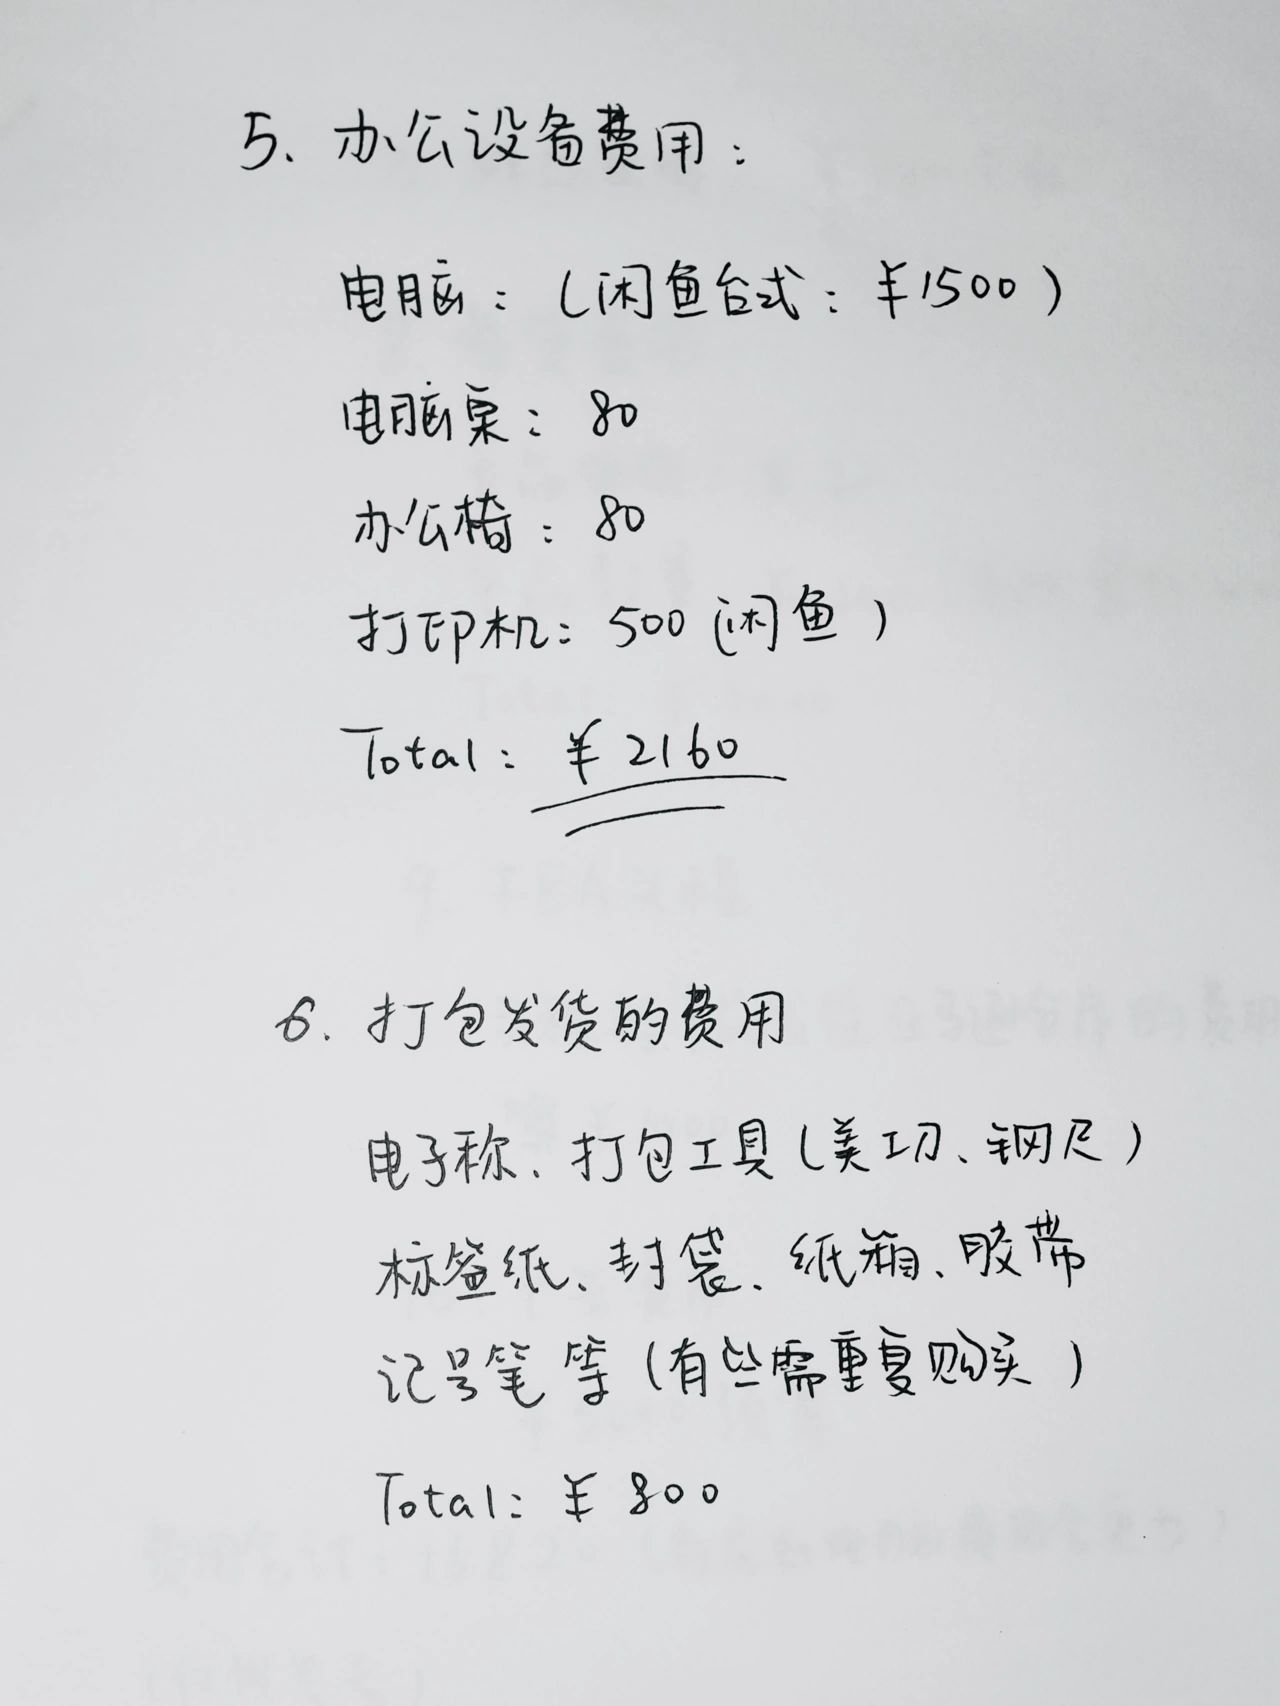 5、办公设备费用：
电脑：（闲鱼台式：¥1500）
电脑桌：80
办公椅：80
打印机：500（闲鱼）
Total：¥2160
6. 打包发货的费用
电子称、打包工具（美工刀、钢尺）
标签纸、封袋、纸箱、胶带
记号笔等（有些需重复购买）
Total：¥800